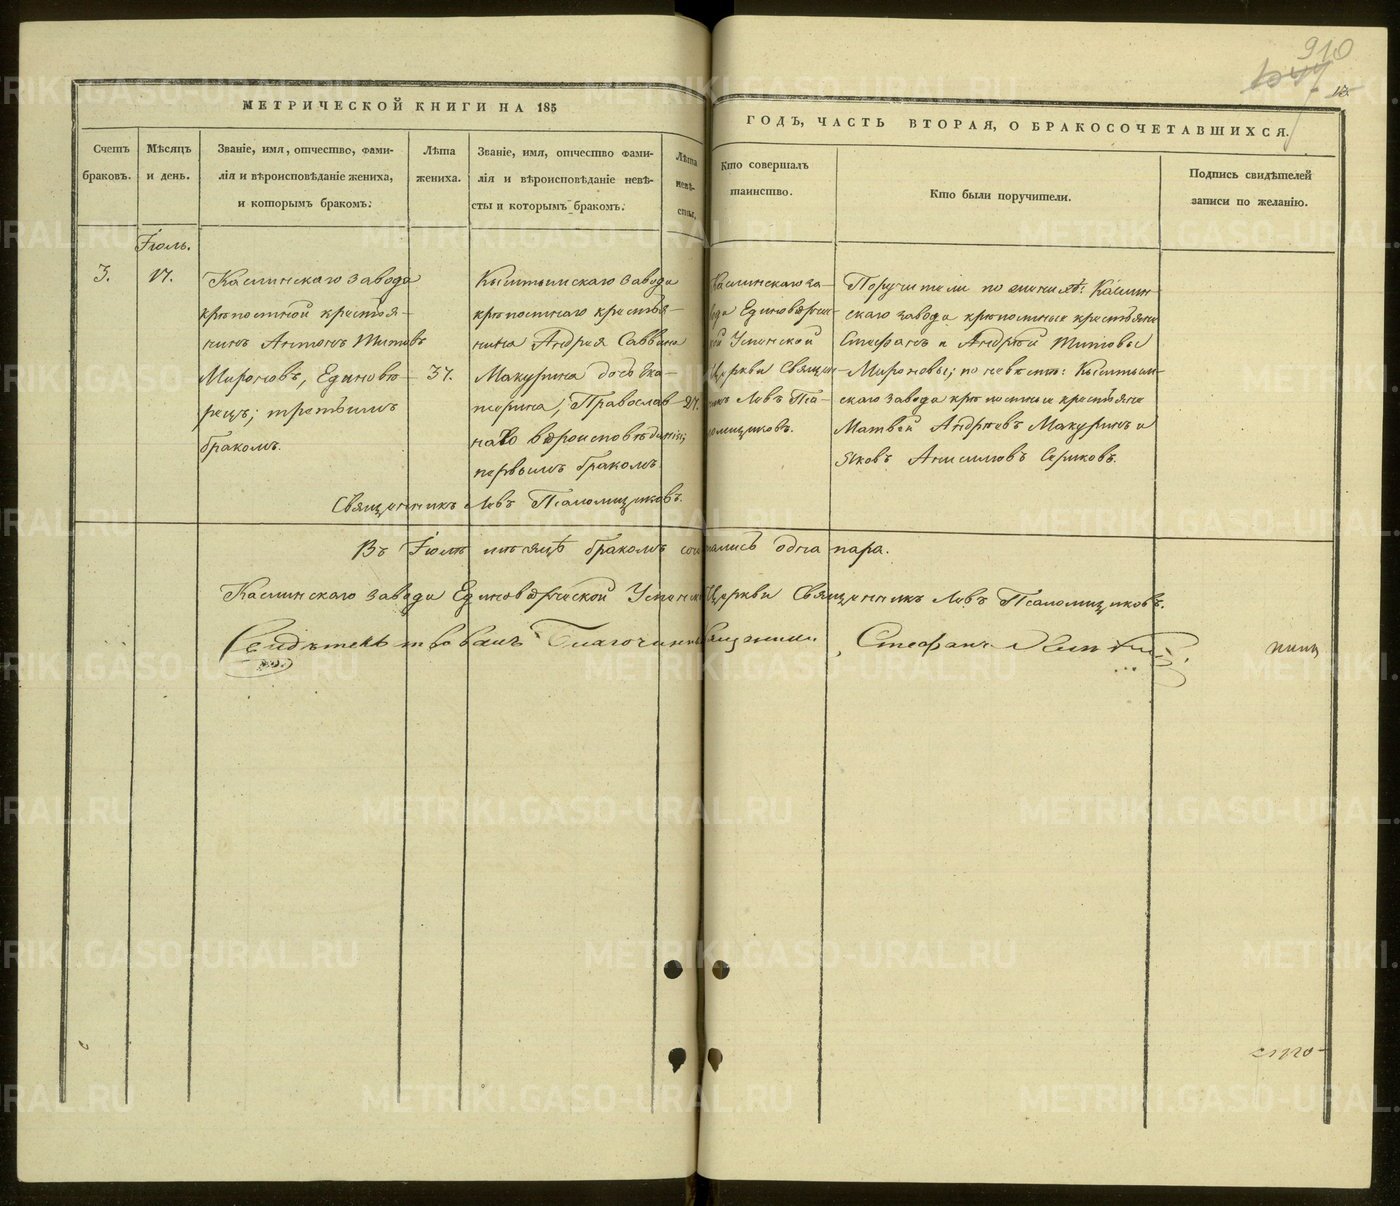 910
МЕТРИЧЕСКОЙ КНИГИ НА 185
ГОДЪ, ЧАСТЬ ВТОРАЯ, О БРАКОСОЧЕТАВШИХСЯ.
Счетъ
браковъ.
Мѣсяцъ
и день.
Званіе, имя, отчество, фами-
лія и вѣроисповѣданіе жениха,
и которымъ бракомъ.
Лѣта
жениха.
Званіе, имя, отчество фами-
лія и вѣроисповѣданіе невѣ-
сты и которымъ бракомъ.
Лѣта
невѣ-
сты.
Кто совершалъ
таинство.
Кто были поручители.
Подпись свидѣтелей
записи по желанію.
Іюль.
3.
17.
Каслинскаго завода
крѣпостной крестья-
нинъ Антонъ Титовъ
Мироновъ, Единовѣ-
рецъ; третьимъ
бракомъ.
37.
Кыштымскаго завода
крѣпостнаго крестья-
нина Андрея Саввина
Макурина дочь Ека-
терина, Православ-
наго вѣроисповѣданія;
первымъ бракомъ.
27.
Каслинскаго за-
вода Единовѣрче-
кой Успенской
Церкви Священ-
никъ Левъ Пса-
ломщиковъ.
Поручители по женихѣ: Каслин-
скаго завода крѣпостные крестьяне
Стефанъ и Андрей Титовы
Мироновы; по невѣстѣ: Кыштым-
скаго завода крѣпостные крестьяне
Матвей Андреевъ Макуринъ и
Яковъ Анисимовъ Серіковъ.
Священникъ Левъ Псаломщиковъ.
Въ Іюлѣ мѣсяцѣ бракомъ сочетались одна пара.
Каслинскаго завода Единовѣрческой Успенской Церкви Священникъ Левъ Псаломщиковъ.
Свидѣтельствовалъ Благочинный Священникъ Стефанъ
METRIKI.GASO-URAL.RU